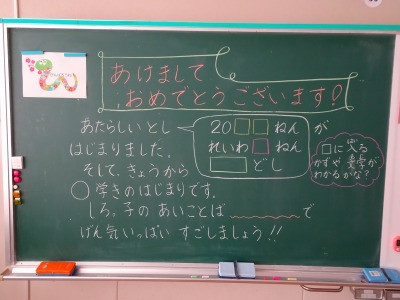 あけまして
おめでとうございます!
あたらしい とし
20□□ねん が
れいわ□ねん
□どし
はじまりました。
そして、きょうから
○学きのはじまりです。
しろ子の あいことば 〜〜〜〜で
げん気いっぱい すごしましょう!!
□に入る
かずや
わかるかな?